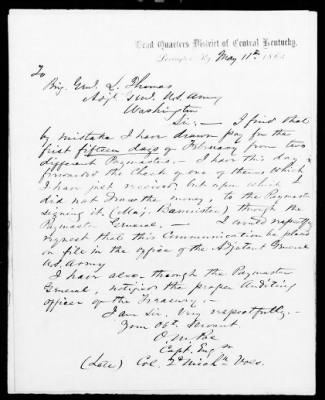 Head Quarters District of Central Kentucky,
Lexington Ky. May 11th 1863
To
Brig. Genl. L. Thomas
Adjt. Genl. U.S. Army
Washington
Sir:— I find that
by mistake I have drawn pay for the
first fifteen days of February from two
different Paymasters — I have this day
forwarded the Check of one of them which
I have just received, but upon which I
did not draw the money, to the Paymaster
signing it (Maj. Bannister) through the
Paymaster General. — I would respectfully
request that this Communication be placed
on file in the office of the Adjutant General
U.S. Army
I have also through the Paymaster
General, notified the proper Auditing
officer of the Treasury.—
I am Sir, Very respectfully.—
Your Obt. Servant
O. M. Poe
Capt. Eng
(Late) Col. 2d Mich. Vols.